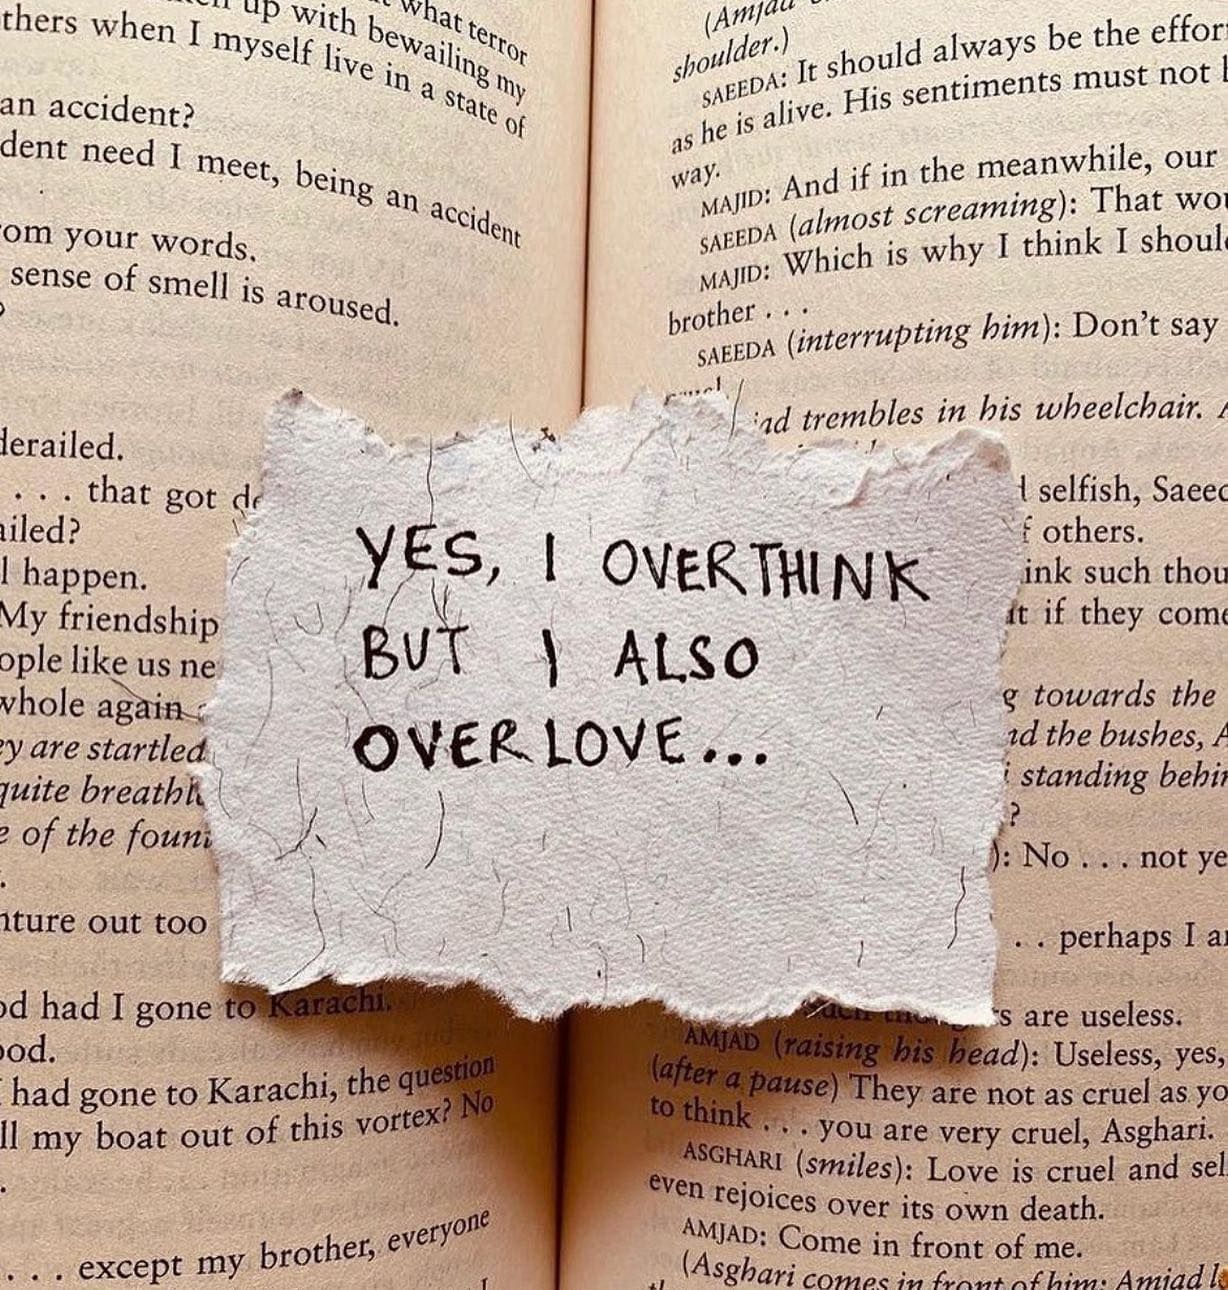 up with bewailing my
what terror
thers when I myself live in a state of
an accident?
dent need I meet, being an accident
om your words.
sense of smell is aroused.
derailed.
. . . that got
ailed?
l happen.
My friendship
ople like us ne
whole again
ey are startled
quite breathl
e of the foun
nture out too
od had I gone to Karachi.
ood.
had gone to Karachi, the question
ll my boat out of this vortex? No
. . . except my brother, everyone
YES, I OVERTHINK
BUT I ALSO
OVERLOVE...
(Amjad
shoulder.)
SAEEDA: It should always be the effor
as he is alive. His sentiments must not
way.
MAJID: And if in the meanwhile, our
SAEEDA (almost screaming): That wou
MAJID: Which is why I think I should
brother . . .
SAEEDA (interrupting him): Don't say
ad trembles in his wheelchair.
selfish, Saeed
f others.
ink such thou
it if they come
g towards the
nd the bushes, A
standing behin
?
): No . . . not ye
. . perhaps I a
s are useless.
AMJAD (raising his head): Useless, yes,
(after a pause) They are not as cruel as yo
to think . . . you are very cruel, Asghari.
ASGHARI (smiles): Love is cruel and sel
even rejoices over its own death.
AMJAD: Come in front of me.
(Asghari comes in front of him; Amjad l